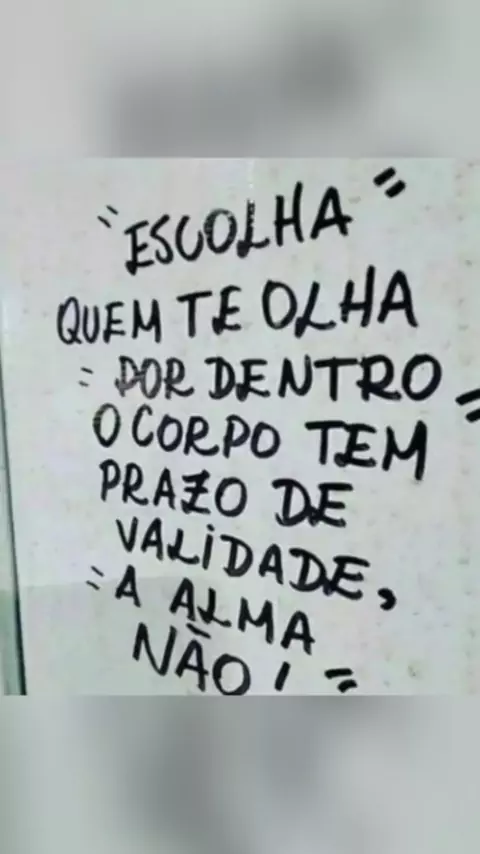 "ESCOLHA"
QUEM TE OLHA
"POR DENTRO"
O CORPO TEM
PRAZO DE
VALIDADE,
"A ALMA
NÃO!"